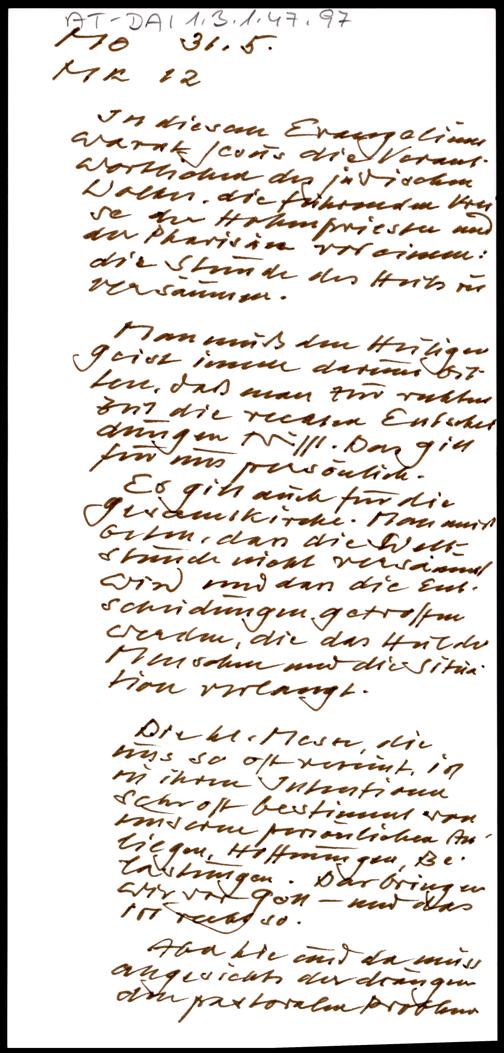 AT-DAI 1.3.1.47.97
MO 31.5.
MK 12
In diesem Evangelium
warnt Jesus die Verant-
wortlichen des jüdischen
Volkes, die führenden Krei-
se der Hohenpriester und
der Pharisäer vor einem:
die Stunde des Heils zu
versäumen.
Man muß den Heiligen
Geist immer darum bit-
ten, daß man zur rechten
Zeit die rechten Entschei
dungen trifft. Das gilt
für uns persönlich.
Es gilt auch für die
Gesamtkirche. Man muß
beten, dass die Welt-
stunde nicht versäumt
wird und dass die Ent-
scheidungen getroffen
werden, die das Heil der
Menschen und die Situa-
tion verlangt.
Die hl. Messe, die
uns so oft vereint, ist
in ihren Intentionen
sehr oft bestimmt von
unseren persönlichen An-
liegen, Hoffnungen, Be-
lastungen. Das bringen
wir vor Gott – und das
ist recht so.
Aber hie und da muss
angesichts der drängen
den pastoralen Probleme